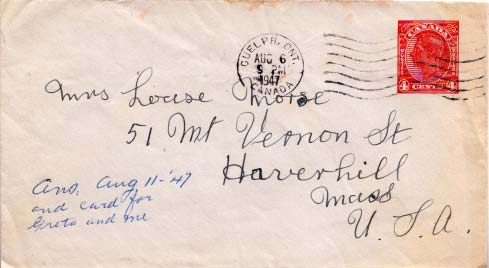 GUELPH, ONT.
AUG 6
9 PM
1947
CANADA
CANADA
4 CENTS 4
Mrs Louise Morse
51 Mt Vernon St
Haverhill
Mass
U. S. A.
Ans. Aug 11-'47
and card for
Greta and me